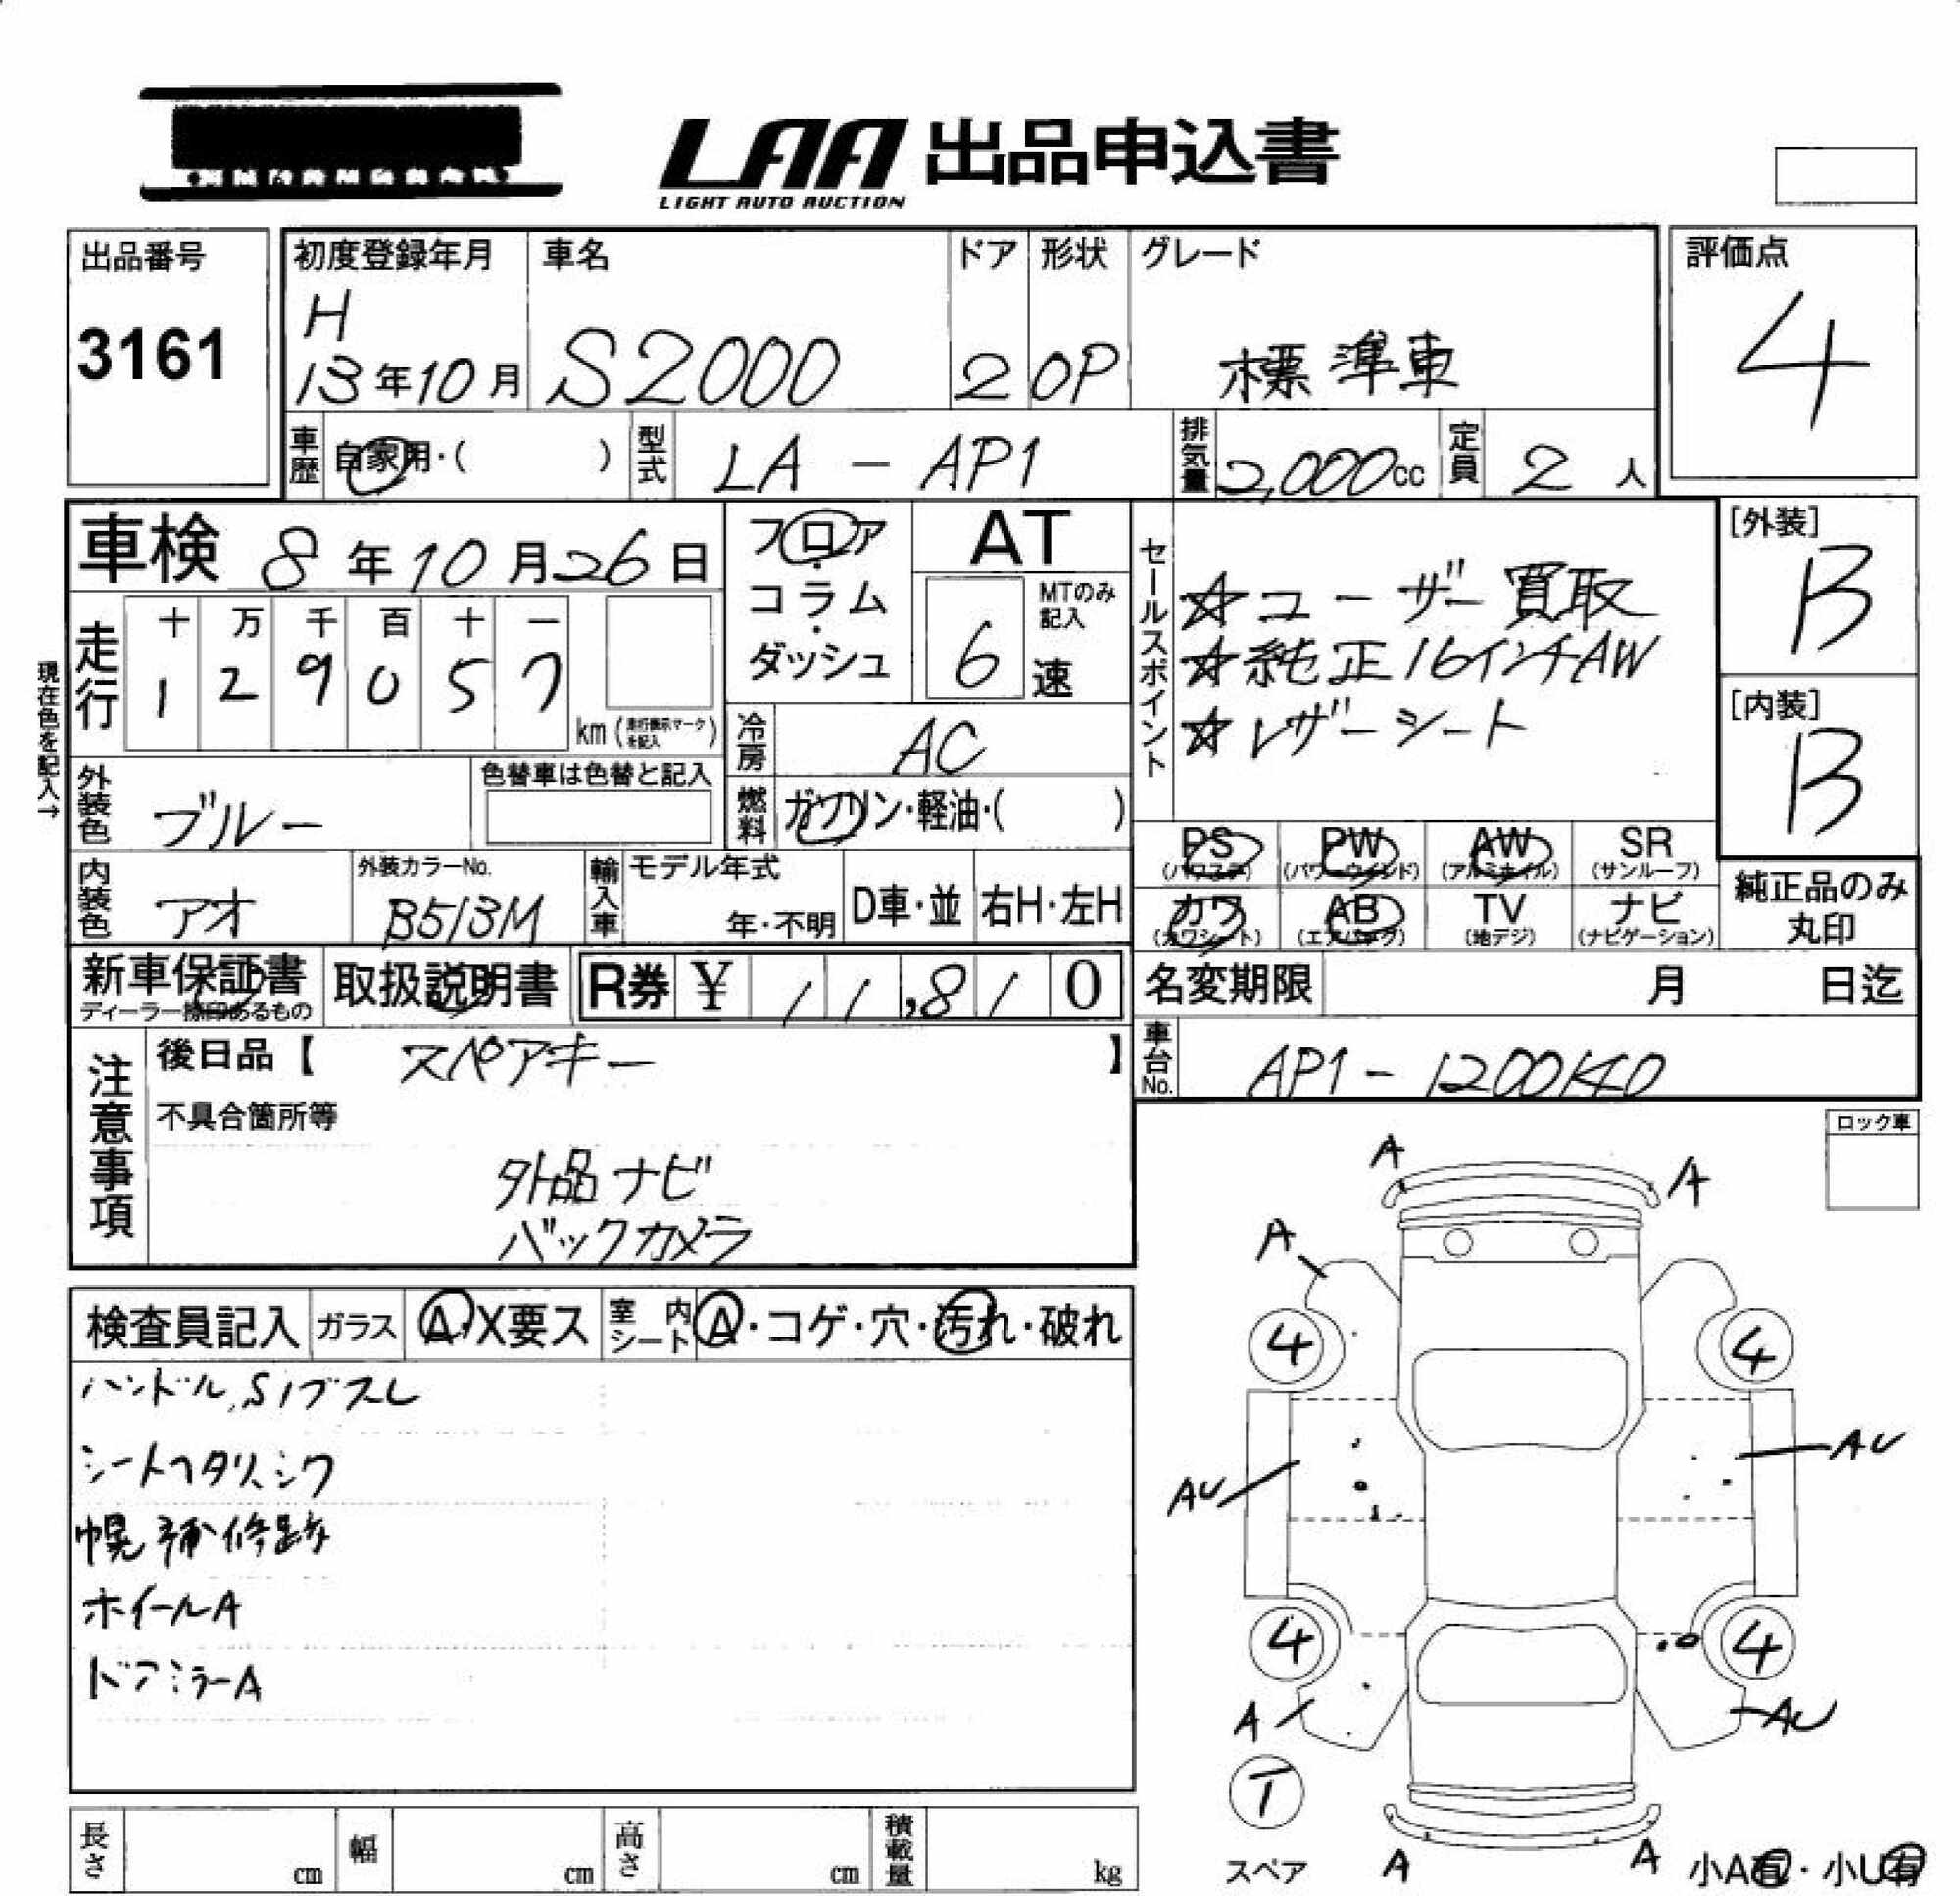 LAA 出品申込書
LIGHT AUTO AUCTION
出品番号
3161
初度登録年月
H
13年10月
車名
S2000
ドア
2
形状
OP
グレード
標準車
評価点
4
車歴
自家用・( )
型式
LA - AP1
排気量
2,000cc
定員
2人
車検 8年10月26日
フロア・コラム・ダッシュ
AT
MTのみ記入
6速
セールスポイント
☆ユーザー買取
☆純正16インチAW
☆レザーシート
[外装]
B
[内装]
B
現在色を記入→
走行
十 万 千 百 十 一
1 2 9 0 5 7
km (走行表示マークを記入)
冷房
AC
外装色
ブルー
色替車は色替と記入
燃料
ガソリン・軽油・( )
PS (パワステ)
PW (パワーウインド)
AW (アルミホイル)
SR (サンルーフ)
内装色
アオ
外装カラーNo.
B513M
輸入車
モデル年式
年・不明
D車・並
右H・左H
カワ (カワシート)
AB (エアバッグ)
TV (地デジ)
ナビ (ナビゲーション)
純正品のみ丸印
新車保証書
ディーラー捺印あるもの
取扱説明書
R券 ¥ 11,810
名変期限 月 日迄
車台No.
AP1-1200140
注意事項
後日品【 スペアキー 】
不具合箇所等
外品ナビ
バックカメラ
ロック車
検査員記入
ガラス
A・X要ス
室内シート
A・コゲ・穴・汚れ・破れ
ハンドル、Sノブスレ
シートヘタリ、シワ
幌補修跡
ホイールA
ドアミラーA
A A
A
4 4
AU AU
4 4
A AU
T
スペア
A A
小A有・小U有
長さ cm
幅 cm
高さ cm
積載量 kg